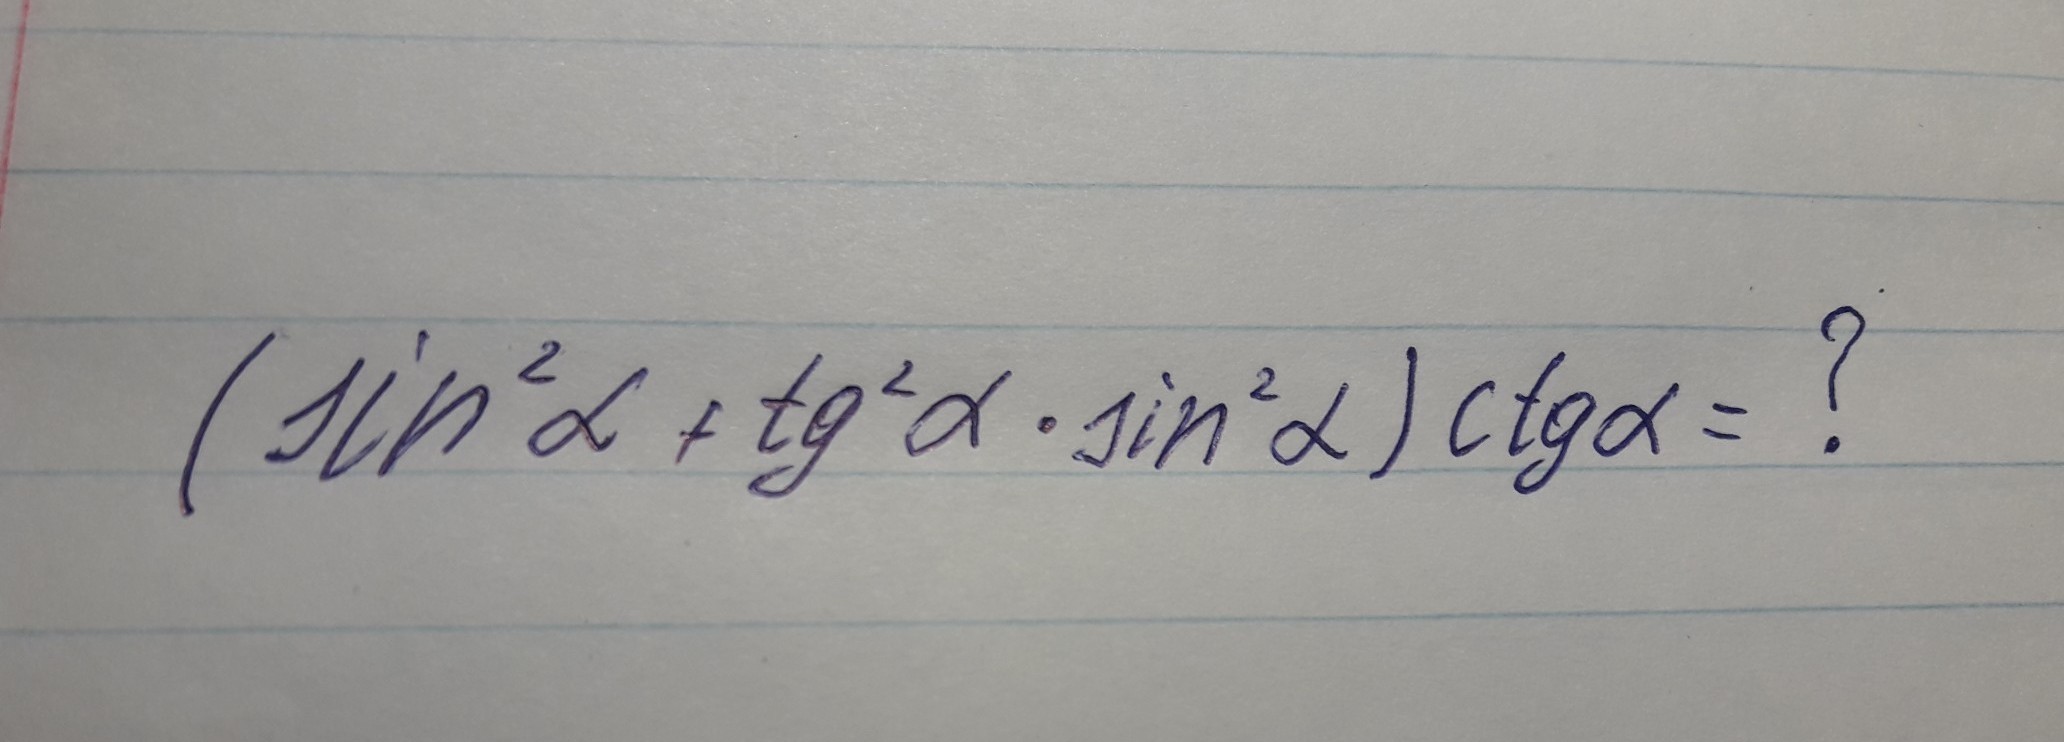 (sin²α + tg²α · sin²α) ctgα = ?